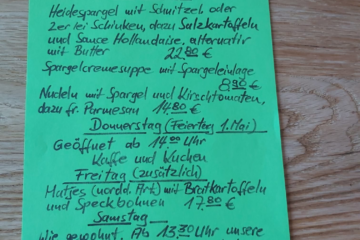 Heidespargel mit Schnitzel oder
2erlei Schinken, dazu Salzkartoffeln
und Sauce Hollandaise, alternativ
mit Butter 22,80 €
Spargelcremesuppe mit Spargeleinlage
8,90 €
Nudeln mit Spargel und Kirschtomaten,
dazu fr. Parmesan 14,80 €
Donnerstag (Feiertag 1. Mai)
Geöffnet ab 14.00 Uhr
Kaffe und Kuchen
Freitag (zusätzlich)
Matjes (nordd. Art) mit Bratkartoffeln
und Speckbohnen 17,80 €
Samstag
Wie gewohnt. Ab 13.30 Uhr unsere